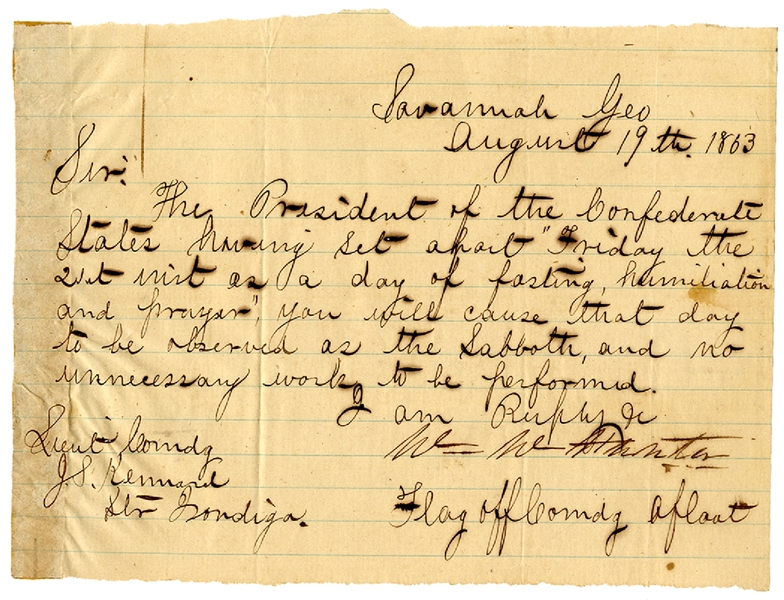 Savannah Geo
August 19th. 1863
Sir:
The President of the Confederate
States having set apart "Friday the
21st inst as a day of fasting, humiliation
and prayer", you will cause that day
to be observed as the Sabboth, and no
unnecessary work, to be performed.
I am Respty &c
Wm W Hunter
Flag off Comdg Afloat
Lieut Comdg
J. S. Kennard
Str Isondiga.